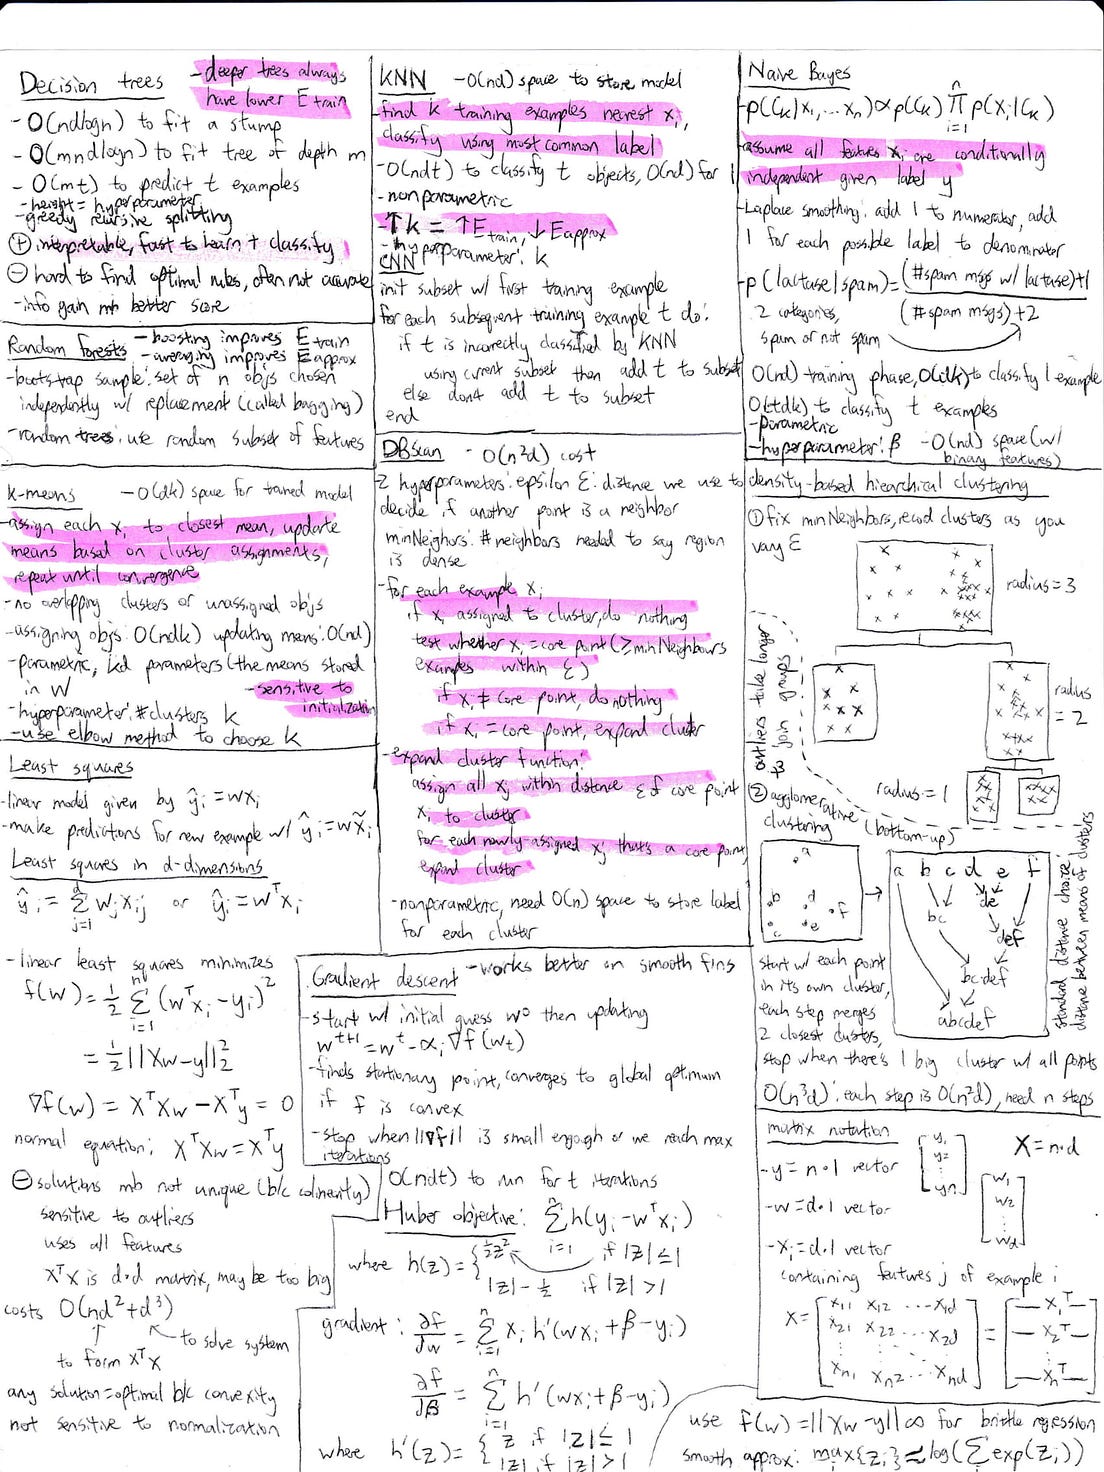 Decision trees
-deeper trees always
have lower E train
- O(ndlogn) to fit a stump
- O(mndlogn) to fit tree of depth m
- O(mt) to predict t examples
-height = hyperparameter
-greedy recursive splitting
⊕ interpretable, fast to learn + classify
⊖ hard to find optimal rules, often not accurate
-info gain mb better score
Random forests
- boosting improves E train
- averaging improves E approx
-bootstrap sample: set of n objs chosen
independently w/ replacement (called bagging)
-random trees: use random subset of features
k-means
-O(dk) space for trained model
-assign each xi to closest mean, update
means based on cluster assignments,
repeat until convergence
-no overlapping clusters or unassigned objs
-assigning objs: O(ndk) updating means: O(nd)
-parametric, kd parameters (the means stored
in W
-sensitive to
initialization
-hyperparameter: #clusters k
-use elbow method to choose k
Least squares
-linear model given by ŷi = wxi
-make predictions for new example w/ ŷi = wx̃i
Least squares in d-dimensions
ŷi = Σ(j=1 to d) wjxij or ŷi = wᵀxi
-linear least squares minimizes
f(w) = ½ Σ(i=1 to n) (wᵀxi - yi)²
= ½||Xw-y||₂²
∇f(w) = XᵀXw - Xᵀy = 0
normal equation: XᵀXw = Xᵀy
⊖ solutions mb not unique (b/c colinearity)
sensitive to outliers
uses all features
XᵀX is d·d matrix, may be too big
costs O(nd²+d³)
to solve system
to form XᵀX
any solution = optimal b/c convexity
not sensitive to normalization
KNN
-O(nd) space to store model
-find k training examples nearest xi,
classify using most common label
-O(ndt) to classify t objects, O(nd) for 1
-nonparametric
-↑k = ↑Etrain, ↓Eapprox
-hyperparameter: k
CNN
init subset w/ first training example
for each subsequent training example t do:
if t is incorrectly classified by KNN
using current subset then add t to subset
else don't add t to subset
end
DBscan
- O(n²d) cost
-2 hyperparameters: epsilon ε: distance we use to
decide if another point is a neighbor
minNeighors: #neighbors needed to say region
is dense
-for each example xi
if xi assigned to cluster, do nothing
test whether xi = core point (≥minNeighbours
examples within ε)
if xi ≠ core point, do nothing
if xi = core point, expand cluster
-expand cluster function:
assign all xj within distance ε of core point
xi to cluster
for each newly-assigned xj that's a core point,
expand cluster
-nonparametric, need O(n) space to store label
for each cluster
Gradient descent
-works better on smooth fins
-start w/ initial guess w⁰ then updating
wᵗ⁺¹ = wᵗ - αi∇f(wt)
-finds stationary point, converges to global optimum
if f is convex
-stop when ||∇f|| is small enough or we reach max
iterations
O(ndt) to run for t iterations
Huber objective: Σ(i=1 to n) h(yi - wᵀxi)
where h(z) = { ½z² if |z| ≤ 1
|z| - ½ if |z| > 1
gradient: ∂f/∂w = Σ(i=1 to n) xi h'(wxi + β - yi)
∂f/∂β = Σ(i=1 to n) h'(wxi + β - yi)
where h'(z) = { z if |z| ≤ 1
|z| if |z| > 1
Naive Bayes
-p(Ck|x1,...xn) ∝ p(Ck) Π(i=1 to n) p(xi|Ck)
-assume all features xi are conditionally
independent given label y
-Laplace smoothing: add 1 to numerator, add
1 for each possible label to denominator
-p(lactase|spam) = (#spam msgs w/ lactase)+1
(#spam msgs)+2
2 categories,
spam or not spam
O(nd) training phase, O(dk) to classify 1 example
O(tdk) to classify t examples
-parametric
-hyperparameter: β
-O(nd) space (w/
binary features)
density-based hierarchical clustering
① fix minNeighbors, record clusters as you
vary ε
radius=3
radius
= 2
radius=1
outliers take longer
to join groups
② agglomerative (bottom-up)
clustering
a
b
d
f
c
e
a b c d e f
de
bc
def
bcdef
abcdef
standard distance choice:
distance between means of clusters
start w/ each point
in its own cluster,
each step merges
2 closest clusters,
stop when there's 1 big cluster w/ all points
O(n³d): each step is O(n²d), need n steps
matrix notation
-y = n·1 vector
[y1 y2 ⋮ yn]
X = n·d
-w = d·1 vector
[w1 w2 ⋮ wd]
-xi = d·1 vector
containing features j of example i
X = [x11 x12 ... x1d
x21 x22 ... x2d
⋮
xn1 xn2 ... xnd] = [— x1ᵀ —
— x2ᵀ —
⋮
— xnᵀ —]
use f(w) = ||Xw - y||∞ for brittle regression
smooth approx: max{zi} ≈ log(Σ exp(zi))